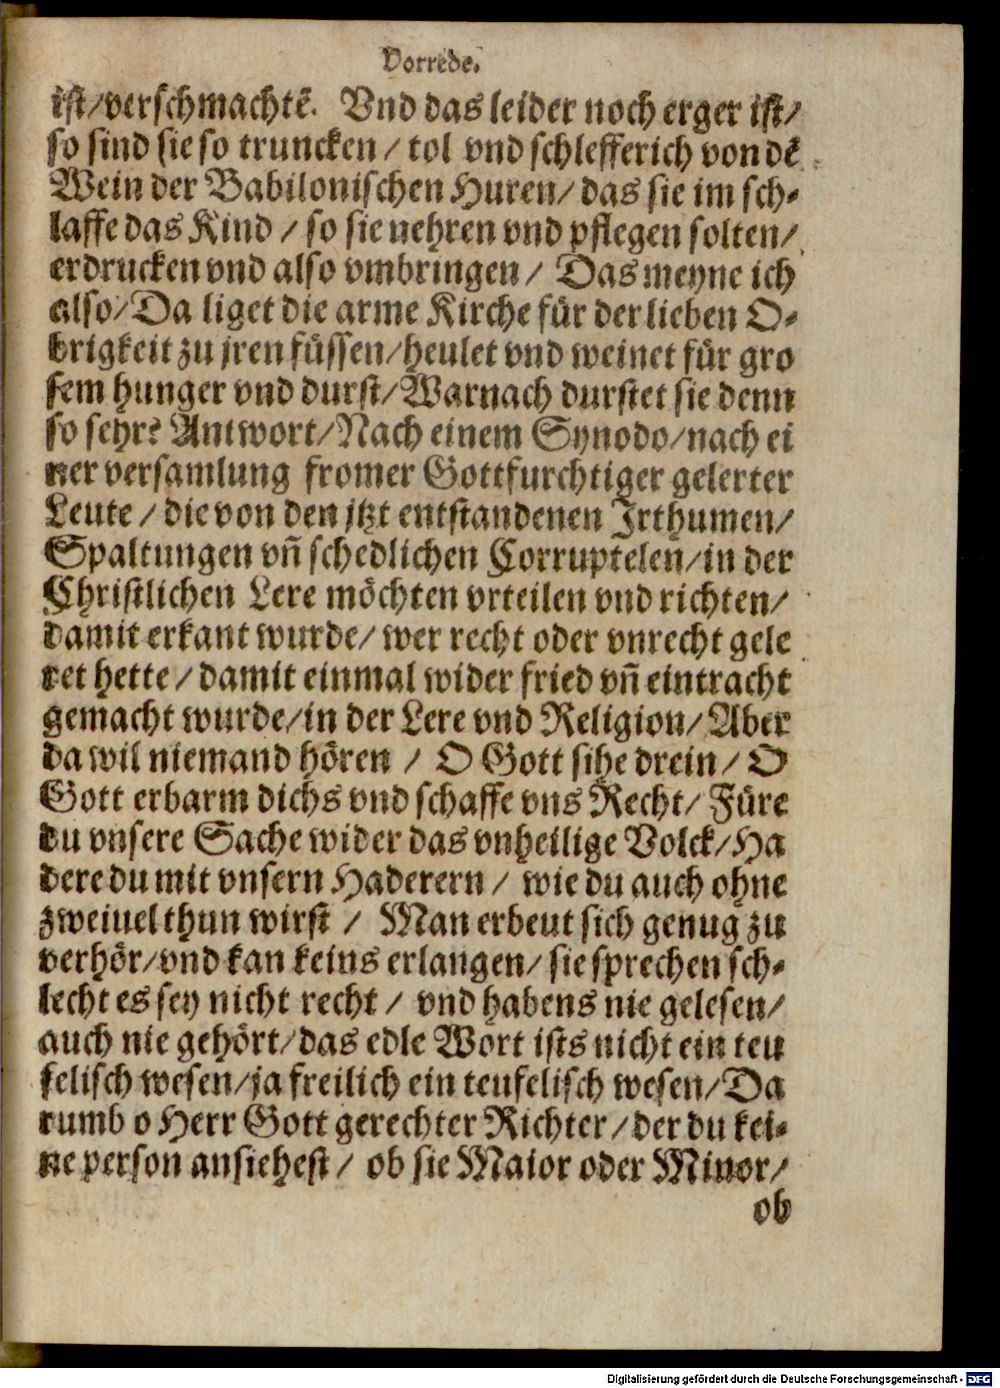 Vorrede.
ist/verschmachtē. Vnd das leider noch erger ist/
so sind sie so truncken / tol vnd schlefferich von dē
Wein der Babilonischen Huren/ das sie im sch-
laffe das Kind / so sie nehren vnd pflegen solten/
erdrucken vnd also vmbringen / Das meyne ich
also/Da liget die arme Kirche für der lieben O-
brigkeit zu jren füssen/heulet vnd weinet für gro
sem hunger vnd durst/Warnach durstet sie denn
so sehr? Antwort/Nach einem Synodo/nach ei
ner versamlung fromer Gottfurchtiger gelerter
Leute / die von den jtzt entstandenen Irthumen/
Spaltungen vn̄ schedlichen Corruptelen/in der
Christlichen Lere möchten vrteilen vnd richten/
damit erkant wurde/ wer recht oder vnrecht gele
ret hette / damit einmal wider fried vn̄ eintracht
gemacht wurde/in der Lere vnd Religion/ Aber
da wil niemand hören / O Gott sihe drein / O
Gott erbarm dichs vnd schaffe vns Recht/ Füre
du vnsere Sache wider das vnheilige Volck/Ha
dere du mit vnsern Haderern / wie du auch ohne
zweiuel thun wirst / Man erbeut sich genug zu
verhör/vnd kan keins erlangen/ sie sprechen sch-
lecht es sey nicht recht / vnd habens nie gelesen/
auch nie gehört/das edle Wort ists nicht ein teu
felisch wesen/ja freilich ein teufelisch wesen/Da
rumb o Herr Gott gerechter Richter / der du kei-
ne person ansiehest / ob sie Maior oder Minor/
ob
Digitalisierung gefördert durch die Deutsche Forschungsgemeinschaft - DFG